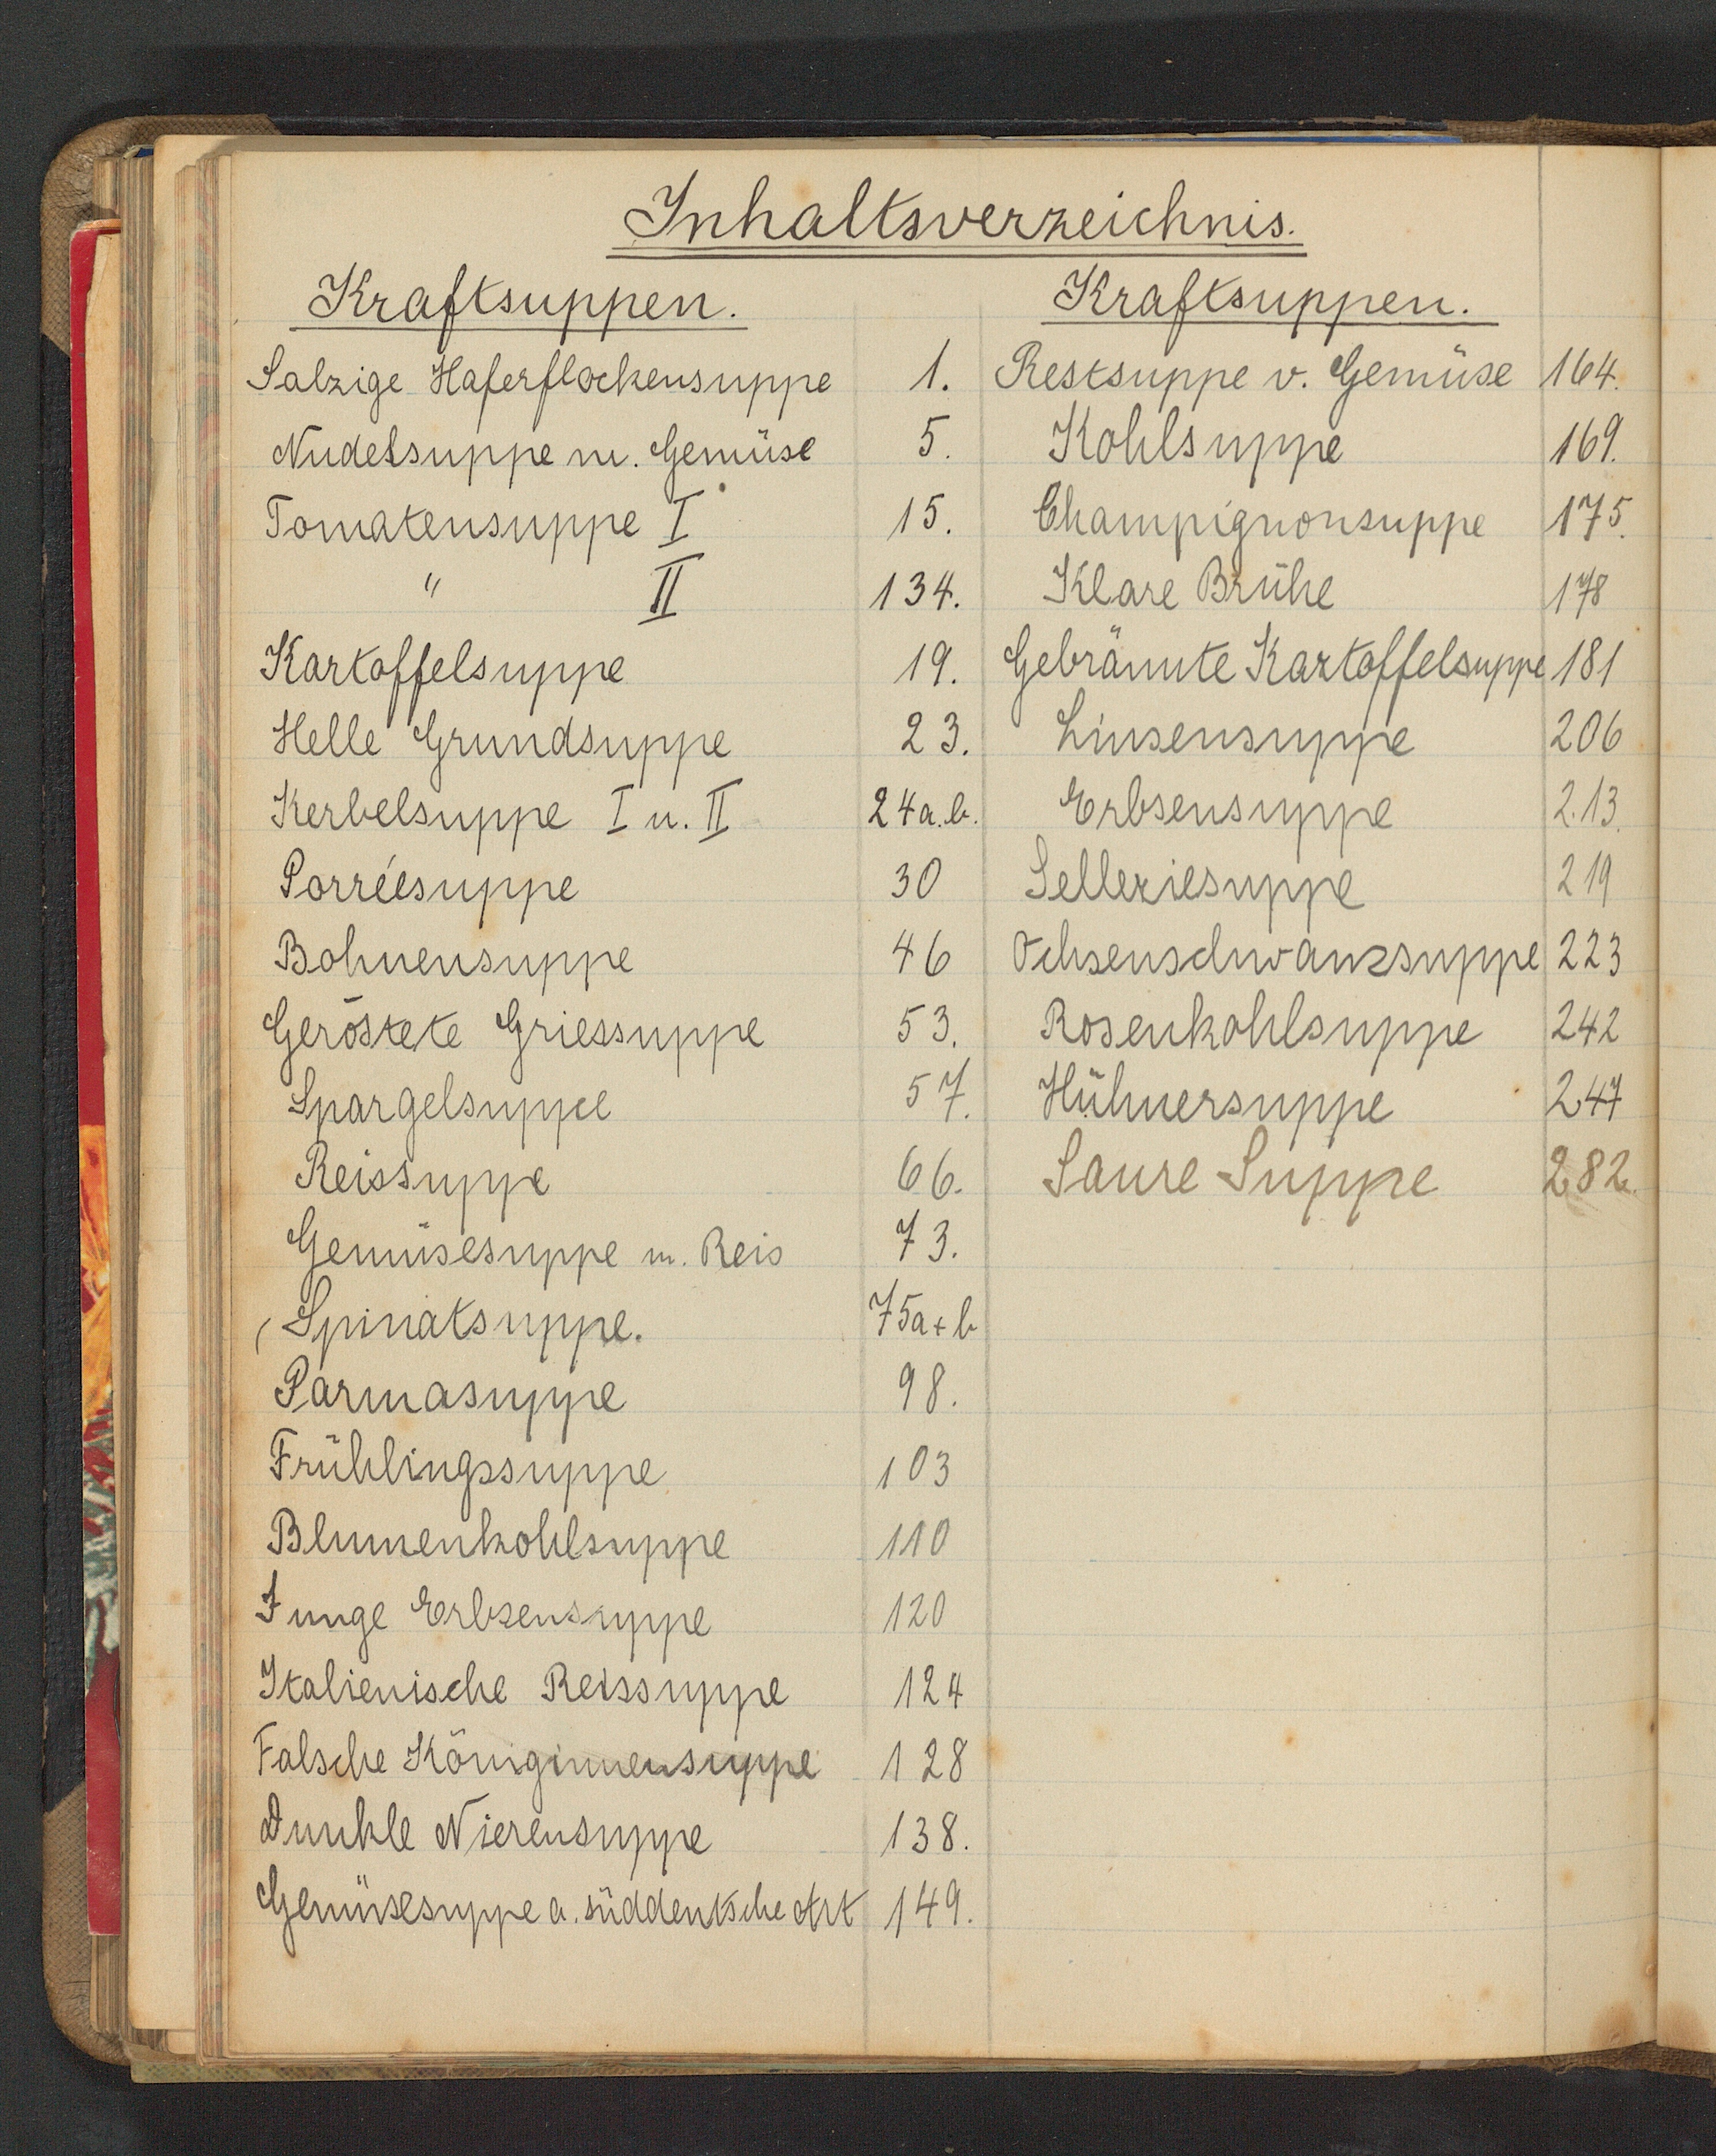 Inhaltsverzeichnis.
Kraftsuppen.
Salzige Haferflockensuppe 1.
Nudelsuppe m. Gemüse 5.
Tomatensuppe I 15.
" II 134.
Kartoffelsuppe 19.
Helle Grundsuppe 23.
Kerbelsuppe I u. II 24a.b.
Porréesuppe 30
Bohnensuppe 46
Geröstete Griessuppe 53.
Spargelsuppe 57.
Reissuppe 66.
Gemüsesuppe m. Reis 73.
Spinatsuppe. 75a+b
Parmasuppe 98.
Frühlingssuppe 103
Blumenkohlsuppe 110
Junge Erbsensuppe 120
Italienische Reissuppe 124
Falsche Königinnensuppe 128
Dunkle Nierensuppe 138.
Gemüsesuppe a. süddeutsche Art 149.
Kraftsuppen.
Restsuppe v. Gemüse 164.
Kohlsuppe 169.
Champignonsuppe 175.
Klare Brühe 178
Gebräunte Kartoffelsuppe 181
Linsensuppe 206
Erbsensuppe 213.
Selleriesuppe 219
Ochsenschwanzsuppe 223
Rosenkohlsuppe 242
Hühnersuppe 247
Saure Suppe 282.